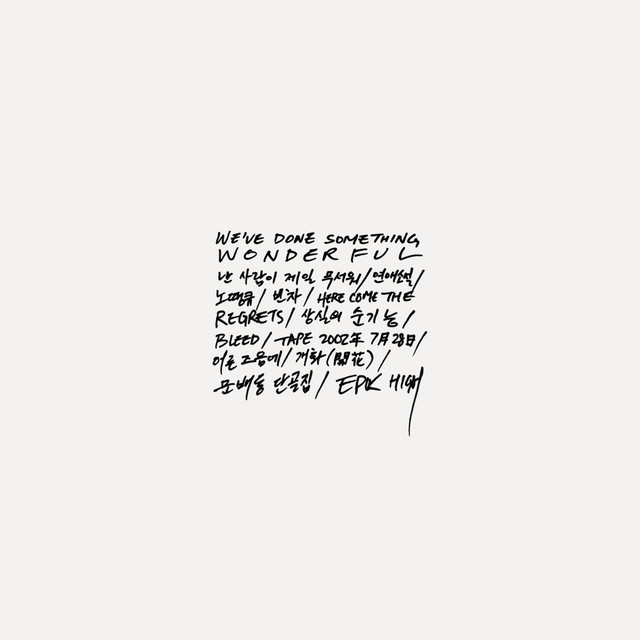 WE'VE DONE SOMETHING
WONDERFUL
난 사람이 제일 무서워/연애소설/
노땡큐/ 빈차/ HERE COME THE
REGRETS/ 상실의 순기능/
BLEED/ TAPE 2002年 7月 28日/
어른 즈음에/ 개화(開花)/
문배동 단골집/ EPIK HIGH